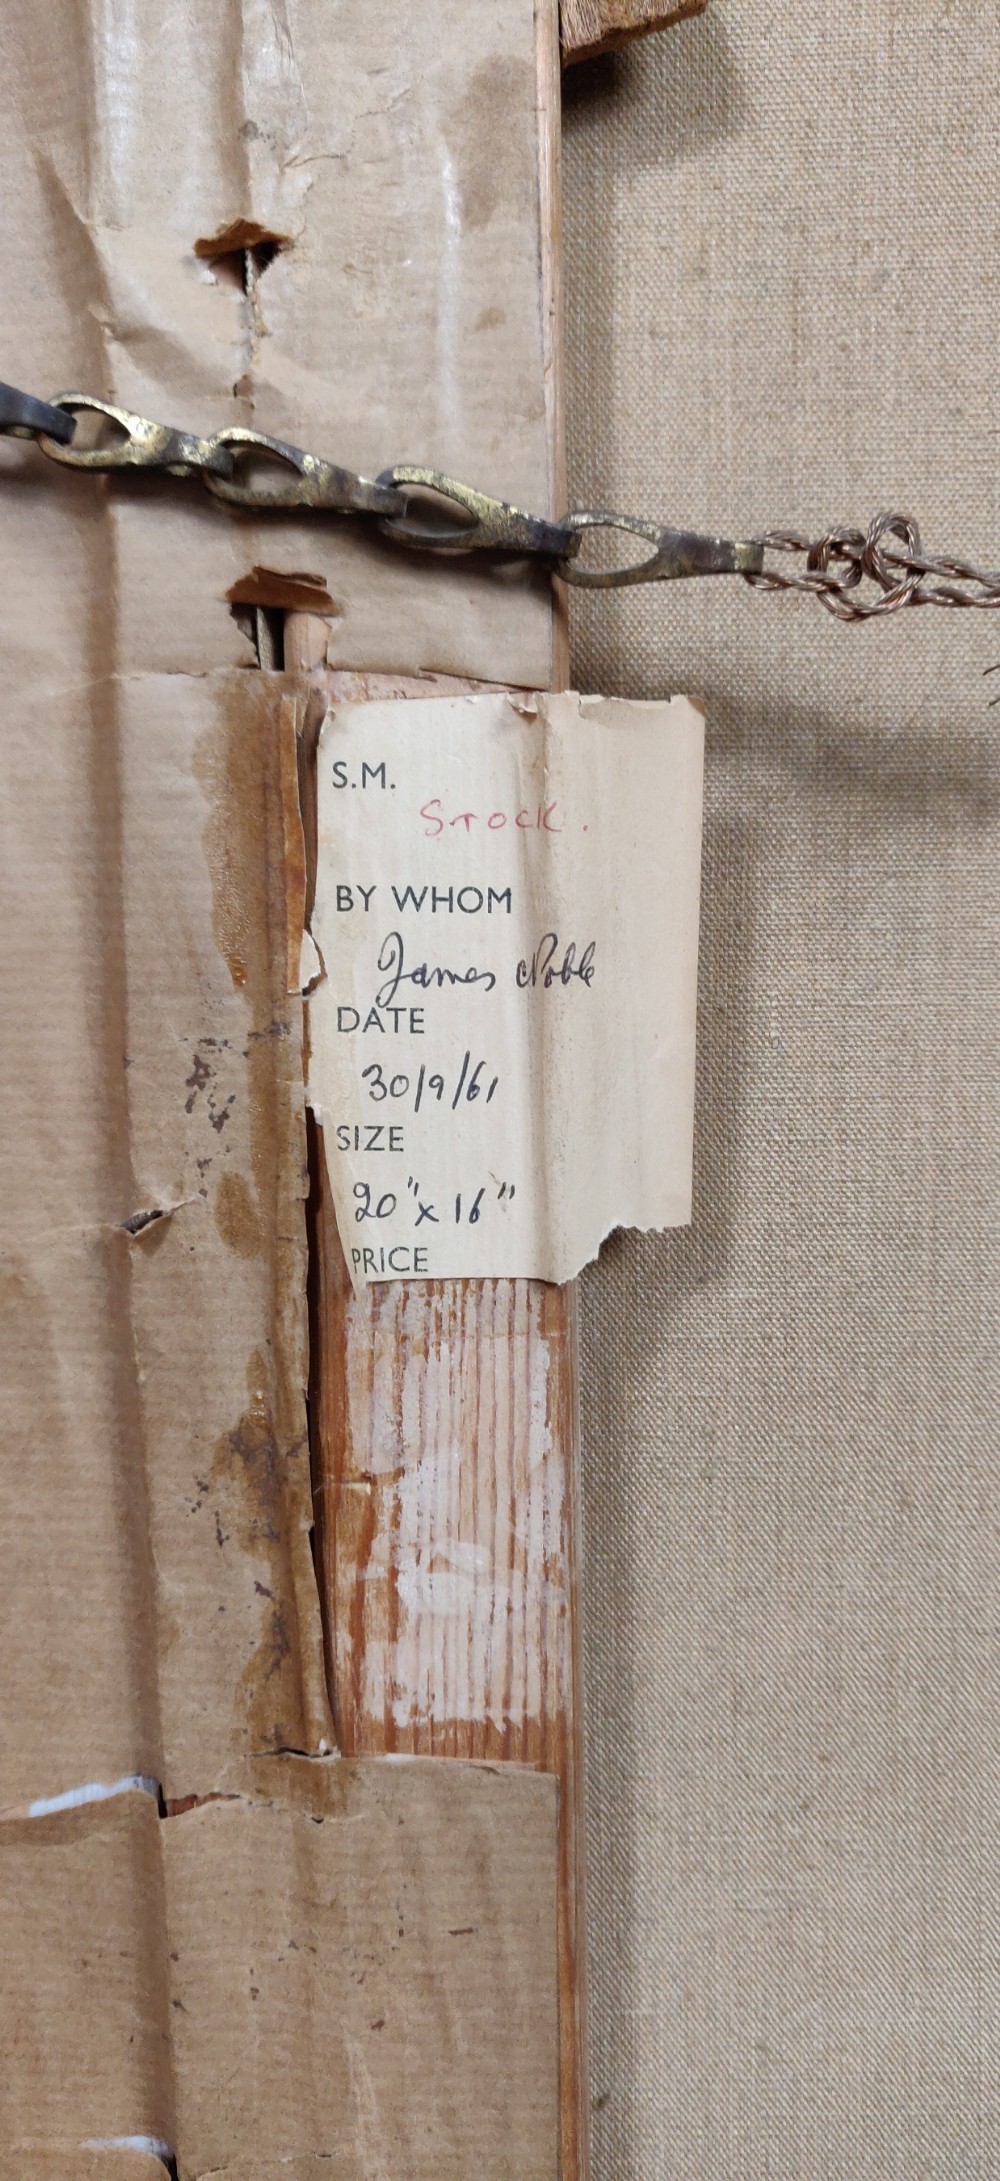 S.M.
STOCK.
BY WHOM
James Noble
DATE
30/9/61
SIZE
20" x 16"
PRICE